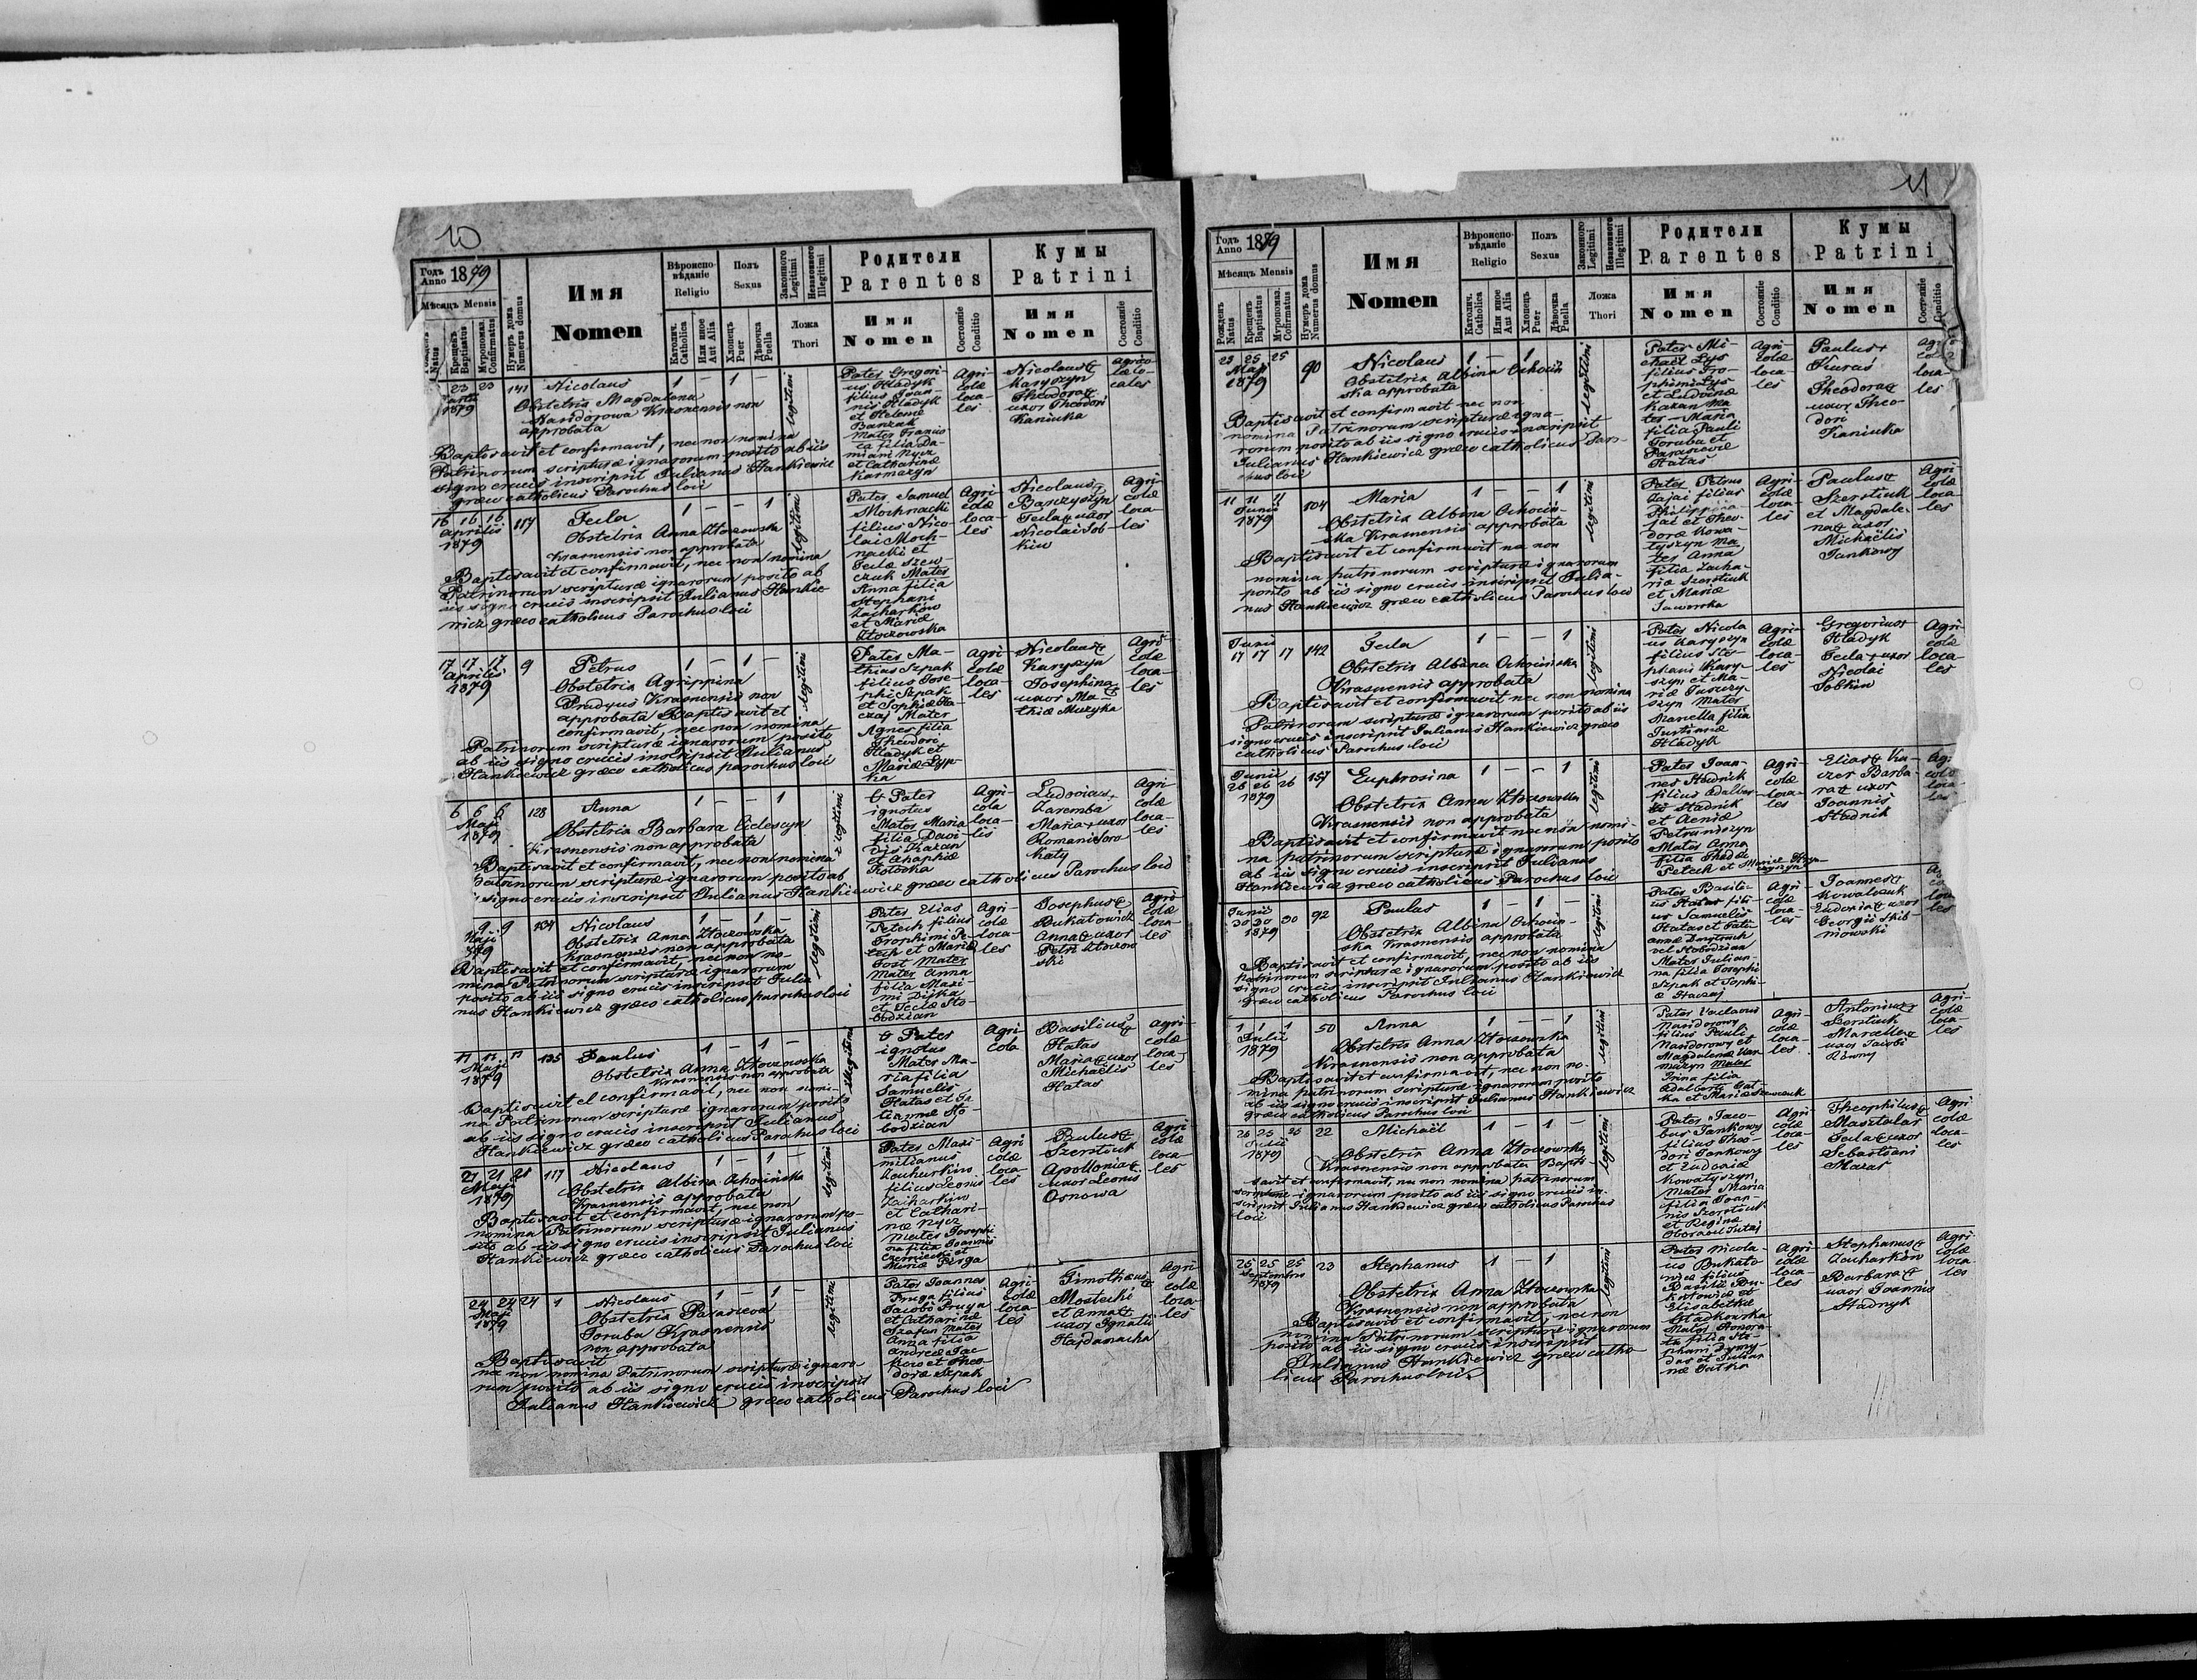 10
Годъ Anno 1879
Мѣсяцъ Mensis
Natus
Крещенъ Baptisatus
Мѵропомаз. Confirmatus
Нумеръ дома Numerus domus
Имя
Nomen
Вѣроиспо-
вѣданіе
Religio
Католич. Catholica
Или иное Aut Alia
Полъ
Sexus
Хлопецъ Puer
Дѣвочка Puella
Законного Legitimi
Незаконного Illegitimi
Ложа
Thori
Родители
Parentes
Имя
Nomen
Состояніе Conditio
Кумы
Patrini
Имя
Nomen
Состояніе Conditio
23 23 141 Nicolaus 1 – 1 –
1879
Obstetrix Magdalena
Krasnensis non
approbata
legitimi
Baptisavit et confirmavit, nec non nomina
Patrinorum scripturæ ignarorum posito ab iis
signo crucis inscripsit Julianus Hankiewicz
græco catholicus Parochus loci
Pater Gregori-
us Hladyk
filius Joan-
nis Hladyk
et Helenæ
Banzak
Mater Francis-
ca filia Da-
miani Nycz
et Catharinæ
Karmazyn
Agri-
colæ
loca-
les
Nicolaus
Karyszyn
Theodora
uxor Theodori
Kaniuka
16 16 16 117 Tecla 1 – – 1
Aprilis
1879
Obstetrix Anna Złoczowska
Krasnensis non approbata
legitimi
Baptisavit et confirmavit, nec non nomina
Patrinorum scripturæ ignarorum posito ab
iis signo crucis inscripsit Julianus Hankie-
wicz græco catholicus Parochus loci
Pater Samuel
Mochnacki
filius Nico-
lai Moch-
nacki et
Teclæ Szew-
czuk Mater
Anna filia
Stephani
Zacharków
et Mariæ
Złoczowska
Agri-
colæ
loca-
les
Nicolaus
Banczyszyn
Tecla uxor
Nicolai Sob-
kiw
Agri-
colæ
loca-
les
17 17 17 9 Petrus 1 – 1 –
Aprilis
1879
Obstetrix Agrippina
Pradyus Krasnensis non
approbata Baptisavit et
confirmavit, nec non nomina
Patrinorum scripturæ ignarorum posito
ab iis signo crucis inscripsit Julianus
Hankiewicz græco catholicus parochus loci
legitimi
Pater Ma-
thias Szpak
filius Jose-
phi Szpak
et Sophiæ Ha-
czaj Mater
Agnes filia
Theodori
Hladyk et
Mariæ Lyp-
ka
Agri-
colæ
loca-
les
Nicolaus
Karyszyn
Josephina
uxor Ma-
thiæ Muzyka
Agri-
colæ
loca-
les
6 6 6 128 Anna 1 – – 1
Maji
1879
Obstetrix Barbara
Krasnensis non approbata
illegitimi
Baptisavit et confirmavit, nec non nomina
Patrinorum scripturæ ignarorum posito ab
iis signo crucis inscripsit Julianus Hankiewicz græco catholicus Parochus loci
Pater
ignotus
Mater Maria
filia Davi-
dis Kazan
et Ahaphiæ
Agri-
cola
loca-
lis
Ludovicus
Zaremba
Maria uxor
Romani Soro-
katy
Agri-
colæ
loca-
les
9 9 134 Nicolaus 1 – 1 –
Maji
1879
Obstetrix Anna Złoczowska
Krasnensis non approbata
legitimi
Baptisavit et confirmavit, nec non no-
mina Patrinorum scripturæ ignarorum
posito ab iis signo crucis inscripsit Julia-
nus Hankiewicz græco catholicus parochus loci
Pater Elias
Petech filius
Trophimi Pe-
tech et Mariæ
Jost Mater
Mater Anna
filia Maxi-
mi Dijka
et Teclæ Sto-
bodzian
Agri-
colæ
loca-
les
Josephus
Bukatowicz
Anna uxor
Petri Złoczow-
ski
Agri-
colæ
loca-
les
11 11 11 135 Paulus 1 – 1 –
Maji
1879
Obstetrix Anna Złoczowska
Krasnensis non approbata
illegitimi
Baptisavit et confirmavit, nec non nomi-
na Patrinorum scripturæ ignarorum posito
ab iis signo crucis inscripsit Julianus
Hankiewicz græco catholicus Parochus loci
Pater
ignotus
Mater Ma-
ria filia
Samuelis
Hatas et Ta-
tiannæ Sto-
bodzian
Agri-
cola
Basilius
Hatas
Maria uxor
Michaëlis
Hatas
Agri-
colæ
loca-
les
21 21 21 117 Nicolaus 1 – 1 –
Maji
1879
Obstetrix Albina Ochocińska
Krasnensis approbata
legitimi
Baptisavit et confirmavit, nec non
nomina Patrinorum scripturæ ignarorum po-
sito ab iis signo crucis inscripsit Julianus
Hankiewicz græco catholicus Parochus loci
Pater Maxi-
milianus
Zacharkiw
filius Leonis
Zacharkiw
et Cathari-
næ Nycz
Mater Josephi-
na filia Joannis
Czerniecki et
Mariæ Perga
Agri-
colæ
loca-
les
Paulus
Szerstiuk
Apollonia
uxor Leonis
Osnowa
Agri-
colæ
loca-
les
24 24 24 1 Nicolaus 1 – 1 –
Maji
1879
Obstetrix Parasceva
Toruba Krasnensis
non approbata
legitimi
Baptisavit
nec non nomina Patrinorum scripturæ ignaro-
rum posito ab iis signo crucis inscripsit
Julianus Hankiewicz græco catholicus Parochus loci
Pater Joannes
Pruga filius
Jacobi Pruga
et Catharinæ
Szafran Mater
Anna filia
Andreæ Jac-
kow et Theo-
doræ Szpak
Agri-
colæ
loca-
les
Timotheus
Mostecki
et Anna
uxor Ignatii
Hajdamacha
Agri-
colæ
loca-
les
11
Годъ Anno 1879
Мѣсяцъ Mensis
Рожденъ Natus
Крещенъ Baptisatus
Мѵропомаз. Confirmatus
Нумеръ дома Numerus domus
Имя
Nomen
Вѣроиспо-
вѣданіе
Religio
Католич. Catholica
Или иное Aut Alia
Полъ
Sexus
Хлопецъ Puer
Дѣвочка Puella
Законного Legitimi
Незаконного Illegitimi
Ложа
Thori
Родители
Parentes
Имя
Nomen
Состояніе Conditio
Кумы
Patrini
Имя
Nomen
Состояніе Conditio
25 25 25 90 Nicolaus 1 – 1
Maji
1879
Obstetrix Albina Ochociń-
ska approbata
legitimi
Baptisavit et confirmavit nec non
nomina Patrinorum scripturæ igna-
rorum posito ab iis signo crucis inscripsit
Julianus Hankiewicz græco catholicus Par-
ochus loci
Pater Mi-
chaël Lys
filius Tro-
phimi Lys
et Eudociæ
Kazan Ma-
ter Maria
filia Pauli
Toruba et
Parascevæ
Hatas
Agri-
colæ
loca-
les
Paulus
Kuras
Theodora
uxor Theo-
dori
Kaniuka
11 11 11 104 Maria 1 – – 1
Junii
1879
Obstetrix Albina Ochociń-
ska Krasnensis approbata
legitimi
Baptisavit et confirmavit nec non
nomina patrinorum scripturæ ignarorum
posito ab iis signo crucis inscripsit Julia-
nus Hankiewicz græco catholicus Parochus loci
Pater Petrus
Fajai filius
Philippi Fa-
jai et Theo-
doræ Kowa-
tyszyn Ma-
ter Anna
filia Zacha-
riæ Szerstiuk
et Mariæ
Jaworska
Agri-
colæ
loca-
les
Paulus
Szerstiuk
et Magdale-
na uxor
Michaëlis
Jankowy
Agri-
colæ
loca-
les
Junii
17 17 17 142 Tecla 1 – – 1
Obstetrix Albina Ochocińska
Krasnensis approbata
legitimi
Baptisavit et confirmavit nec non nomina
Patrinorum scripturæ ignarorum posito ab iis
signo crucis inscripsit Julianus Hankiewicz græco
catholicus Parochus loci
Pater Nicola-
us Karyszyn
filius Ste-
phani Kary-
szyn et Ma-
riæ Juszczy-
szyn Mater
Marcella filia
Justinæ
Hladyk
Agri-
colæ
loca-
les
Gregorius
Hladyk
Tecla uxor
Nicolai
Sobkiw
Agri-
colæ
loca-
les
Junii
26 26 26 157 Euphrosina 1 – – 1
1879
Obstetrix Anna Złoczowska
Krasnensis non approbata
legitimi
Baptisavit et confirmavit nec non nomi-
na patrinorum scripturæ ignarorum posito
ab iis signo crucis inscripsit Julianus
Hankiewicz græco catholicus Parochus loci
Pater Joan-
nes Stadnik
filius Adalber-
ti Stadnik
et Xeniæ
Petruniszyn
Mater Anna
filia Thaddæi
Petech et Mariæ
Agri-
colæ
loca-
les
Elias Ku-
czer Barba-
ra uxor
Joannis
Stadnik
Junii
30 30 30 92 Paulus 1 – 1 –
1879
Obstetrix Albina Ochociń-
ska Krasnensis approbata
legitimi
Baptisavit et confirmavit, nec non nomina
patrinorum scripturæ ignarorum posito ab iis
signo crucis inscripsit Julianus Hankiewicz
græco catholicus Parochus loci
Pater Basili-
us Hatas fili-
us Samuelis
Hatas et Tati-
annæ Dmytruch
vel Stobodzian
Mater Julian-
na filia Josephi
Szpak et Sophi-
æ Haczaj
Agri-
colæ
loca-
les
Joannes
Kowalczuk
Eudoxia uxor
Georgii Skib-
niowski
1 1 1 50 Anna 1 – – 1
Julii
1879
Obstetrix Anna Złoczowska
Krasnensis non approbata
legitimi
Baptisavit et confirmavit, nec non no-
mina patrinorum scripturæ ignarorum posito
ab iis signo crucis inscripsit Julianus Hankiewicz
græco catholicus Parochus loci
Pater
Mandorowy
filius Pauli
Mandorowy et
Magdalenæ Kar-
mazyn Mater
Irina filia
Adalberti
ka et Mariæ Szewczuk
Agri-
colæ
loca-
les
Antonius
Szerstiuk
Marcella
uxor Jacobi
Riwny
Agri-
colæ
loca-
les
25 25 25 22 Michaël 1 – 1 –
Julii
1879
Obstetrix Anna Złoczowska
Krasnensis non approbata Bapti-
savit et confirmavit, nec non nomina patrinorum
scripturæ ignarorum posito ab iis signo crucis in-
scripsit Julianus Hankiewicz græco catholicus Parochus
loci
legitimi
Pater Jaco-
bus Jankowy
filius Theo-
dori Jankowy
et Eudoxiæ
Kowatyszyn
Mater Maria
filia Joan-
nis Szerstiuk
et Reginæ
Agri-
colæ
loca-
les
Theophilus
Masztalar
Tecla uxor
Sebastiani
Mazar
Agri-
colæ
loca-
les
25 25 25 23 Stephanus 1 – 1
Septembris
1879
Obstetrix Anna Złoczowska
Krasnensis non approbata
legitimi
Baptisavit et confirmavit, nec non
nomina Patrinorum scripturæ ignarorum
posito ab iis signo crucis inscripsit
Julianus Hankiewicz græco catho-
licus Parochus loci
Pater Nicola-
us Bukato-
wicz filius
Basilii Bu-
katowicz et
Elisabethæ
Mater Honora-
ta filia Ste-
phani
et Julian-
næ
Agri-
colæ
loca-
les
Stephanus
Zacharków
Barbara
uxor Joannis
Stadnyk
Agri-
colæ
loca-
les